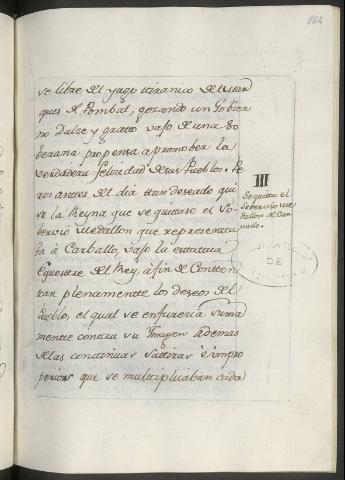 164
se libre del yugo tiranico del Mar
ques de Pombal, gozando un Gobier
no Dulce y gratto vajo de una So
berana propensa a promober la
verdadera felicidad de sus Pueblos. Pe
ro antes del dia tan deseado qui
so la Reyna que se quitase el So
bervio Medallon que representa
ba à Carballo, vajo la estatua
Equestre del Rey, à fin de Conten
tar plenamentte los deseos del
Pueblo, el qual se enfurecia suma
mentte contra su Ymagen ademas
de las continuas Sattiras è impro
perios que se multiplicaban cada
III
Se quita el
Sobervio Me
dallon de Car
vallo.
DE